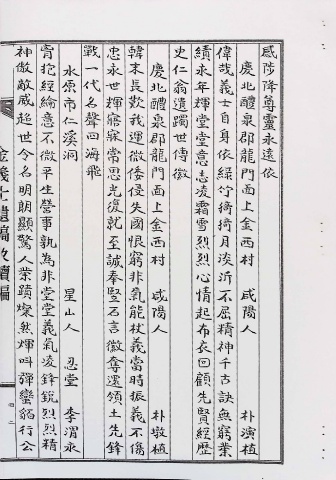 感陟降尊靈永遠依
慶北醴泉郡龍門面上金西村 咸陽人 朴演植
偉哉義士自身依綠竹猗猗月淡沂不屈精神千古訣無窮業
績永年輝堂堂意志凌霜雪烈烈心情起布衣回顧先賢經歷
史仁翁遺躅世傳徽
慶北醴泉郡龍門面上金西村 咸陽人 朴墩植
韓末長歎我運微倭侵失國恨窮非氣能杖義當時振義不傷
忠永世輝寤寐常思光復就至誠奉竪石言徽奪還領土先鋒
戰一代名聲四海飛
水原市仁溪洞 星山人 忍堂 李渭永
胷抱經綸意不微平生營事孰為非堂堂義氣凌鋒銳烈烈精
神傲敵威超世令名明朗顯驚人業蹟燦然輝叫彈蠻貊行公
金義士遺稿及續編
四二